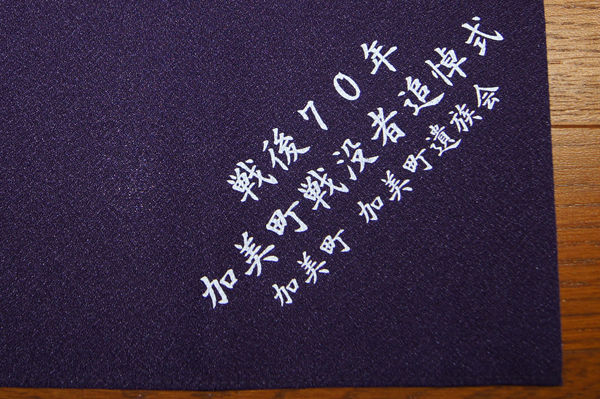 戦後70年
加美町戦没者追悼式
加美町 加美町遺族会